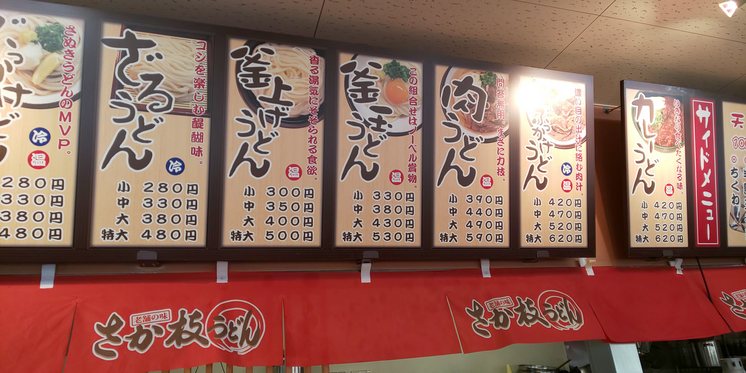 ぶっかけうどん
さぬきうどんのMVP。
冷
温
280円
330円
380円
480円
ざるうどん
コシを楽しむ醍醐味。
冷
小 280円
中 330円
大 380円
特大 480円
釜上げうどん
香る湯気にそそられる食欲。
温
小 300円
中 350円
大 400円
特大 500円
釜玉うどん
この組合せはノーベル賞物
温
小 330円
中 380円
大 430円
特大 530円
肉うどん
温
小 390円
中 440円
大 490円
特大 590円
冷
温
小 420円
中 470円
大 520円
特大 620円
カレーうどん
温
小 420円
中 470円
大 520円
特大 620円
サイドメニュー
天
ちくわ
老舗の味
さか枝うどん
老舗の味
さか枝うどん
さ